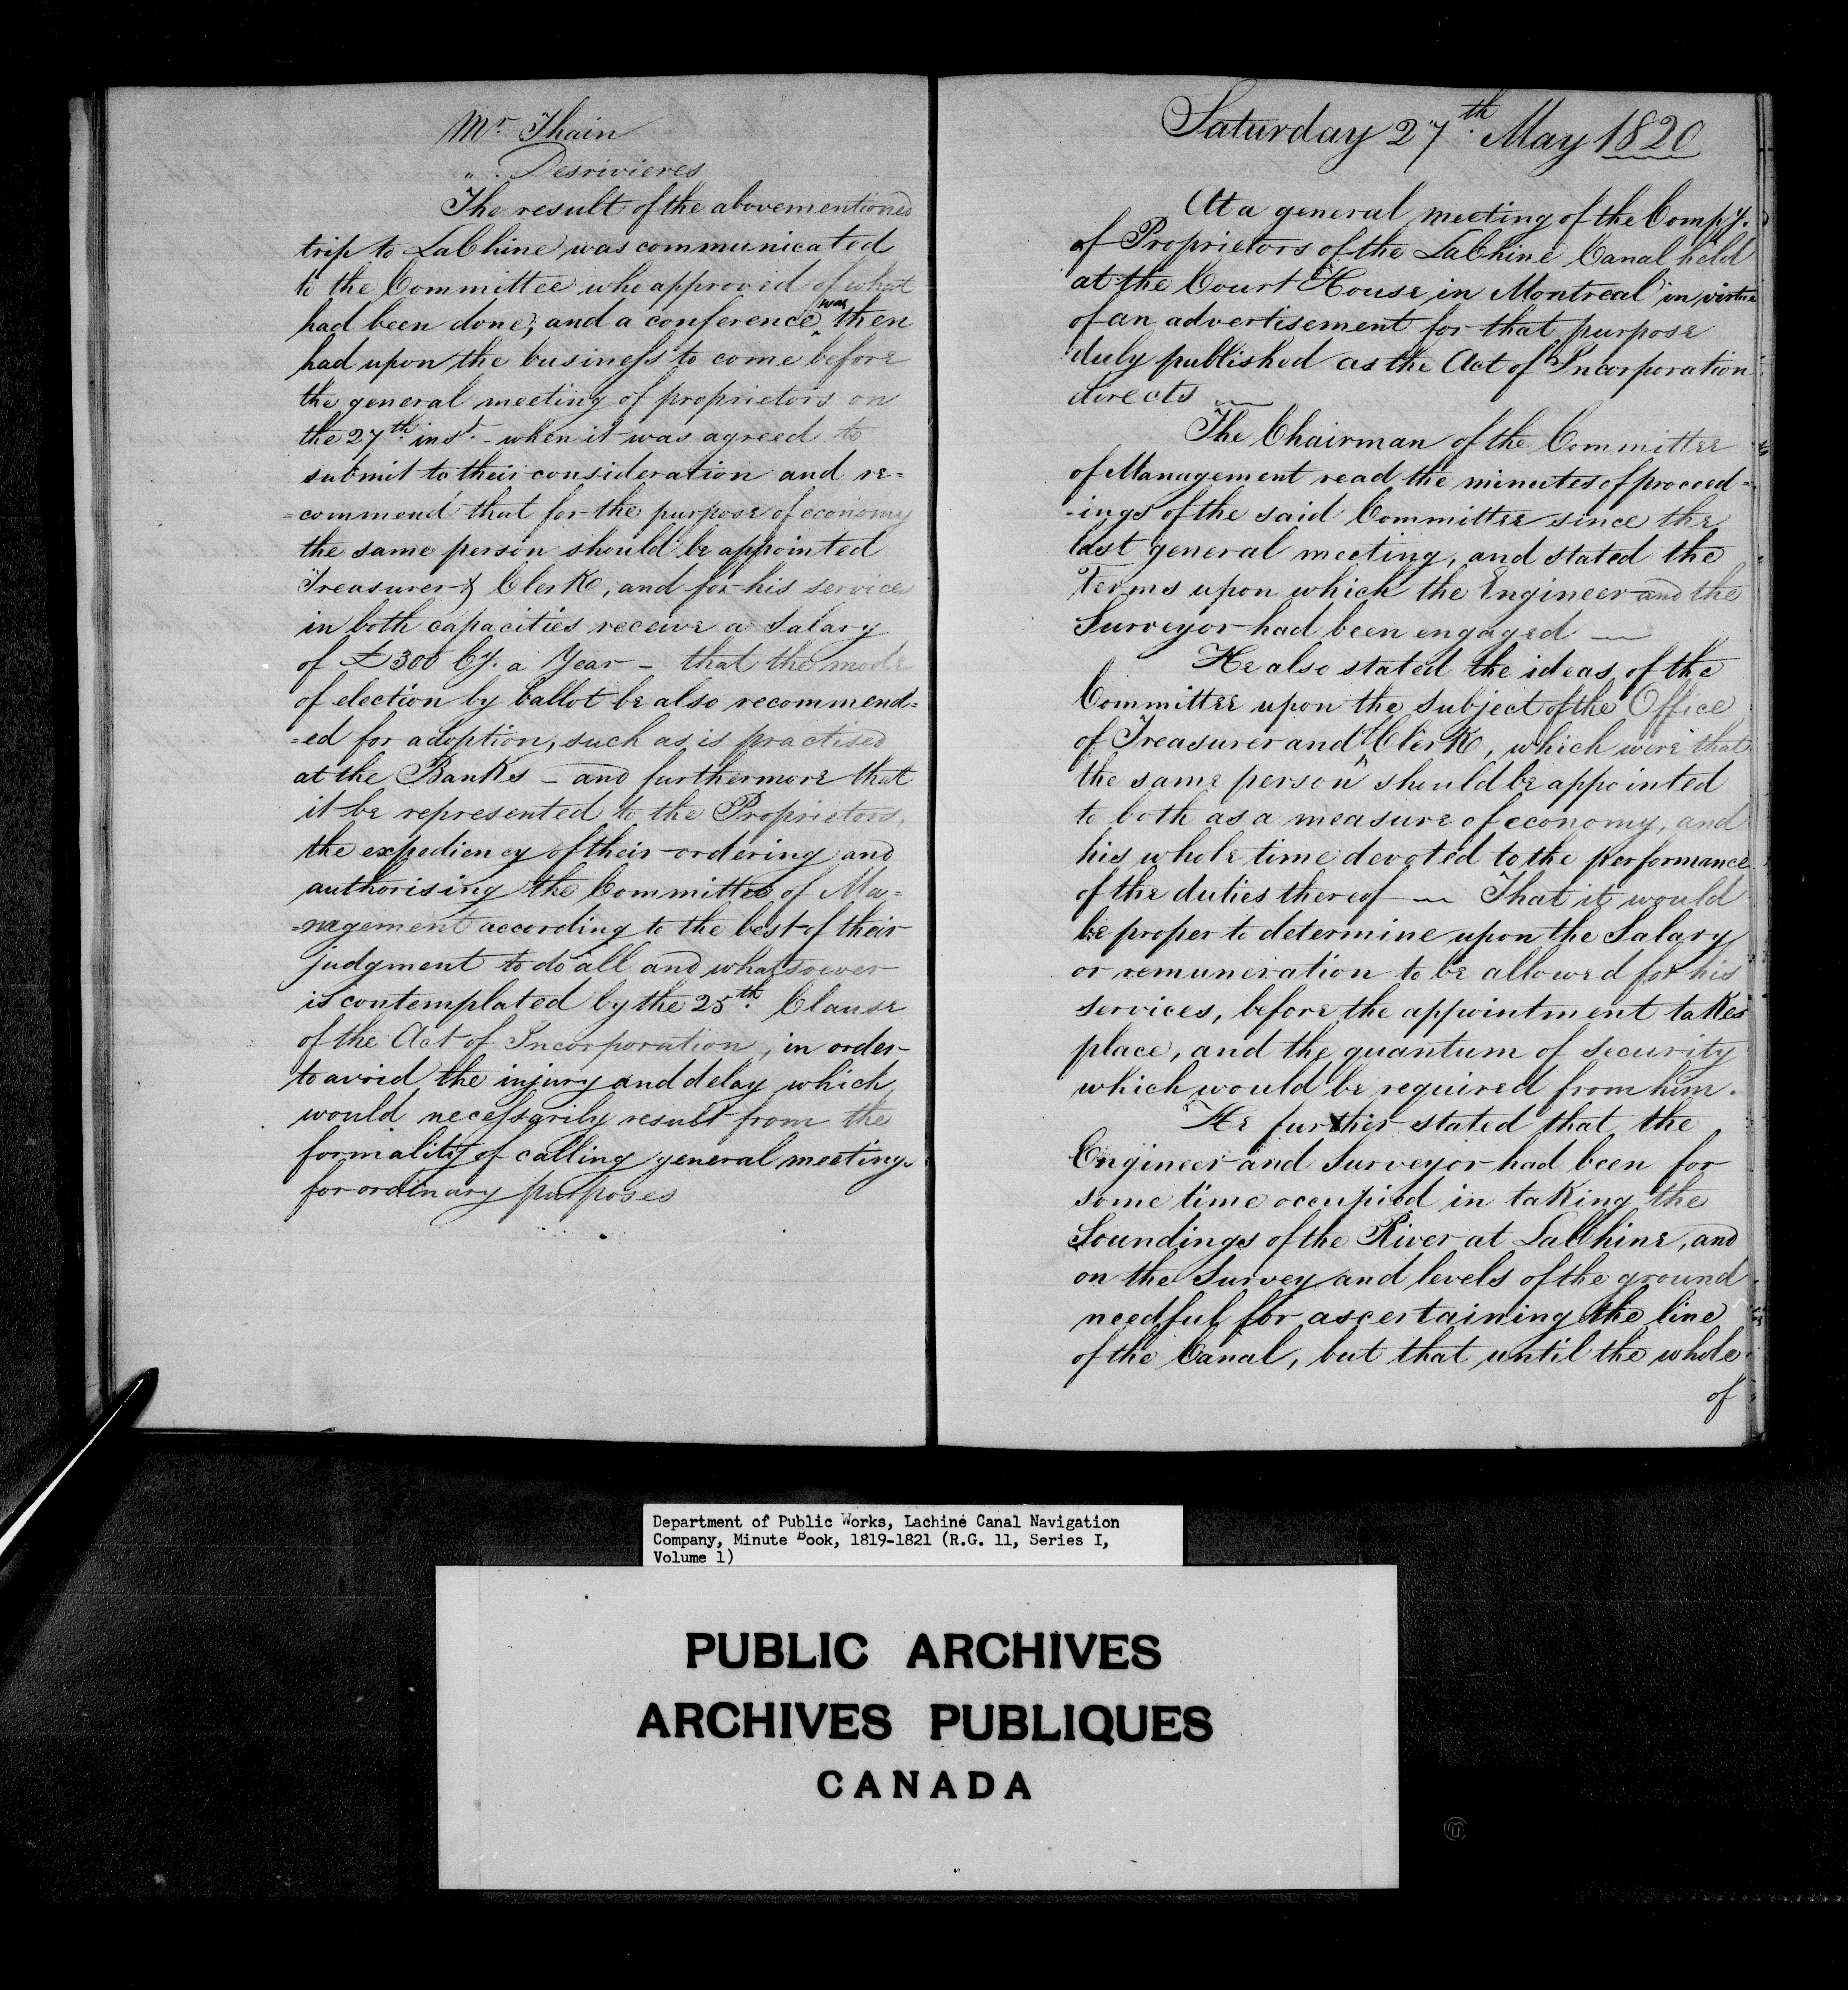 Mr. Thain
" . Desrivieres
The result of the abovementioned
trip to LaChine was communicated
to the Committee who approved of what
had been done; and a conference was then
had upon the business to come before
the general meeting of proprietors on
the 27th. inst. - when it was agreed to
submit to their consideration and re=
=commend that for the purpose of economy
the same person should be appointed
Treasurer & Clerk, and for his services
in both capacities receive a Salary
of £300 Cy. a Year - that the mode
of election by ballot be also recommend=
=ed for adoption, such as is practised
at the Banks - and furthermore that
it be represented to the Proprietors,
the expediency of their ordering and
authorising the Committee of Ma=
=nagement according to the best of their
judgment to do all and whatsoever
is contemplated by the 25th. Clause
of the Act of Incorporation, in order
to avoid the injury and delay which
would necessarily result from the
formality of calling general meetings
for ordinary purposes
Saturday 27th. May 1820
At a general meeting of the Compy.
of Proprietors of the LaChine Canal held
at the Court House in Montreal in virtue
of an advertisement for that purpose
duly published as the Act of Incorporation
directs —
The Chairman of the Committee
of Management read the minutes of proceed=
-ings of the said Committee since the
last general meeting, and stated the
Terms upon which the Engineer and the
Surveyor had been engaged —
He also stated the ideas of the
Committee upon the subject of the Office
of Treasurer and Clerk, which were that
the same person should be appointed
to both as a measure of economy, and
his whole time devoted to the performance
of the duties thereof — That it would
be proper to determine upon the Salary
or remuneration to be allowed for his
services, before the appointment takes
place, and the quantum of security
which would be required from him.
He further stated that the
Engineer and Surveyor had been for
some time occupied in taking the
Soundings of the River at LaChine, and
on the Survey and levels of the ground
needful for ascertaining the line
of the Canal, but that until the whole
of
Department of Public Works, Lachine Canal Navigation
Company, Minute Book, 1819-1821 (R.G. 11, Series I,
Volume 1)
PUBLIC ARCHIVES
ARCHIVES PUBLIQUES
CANADA